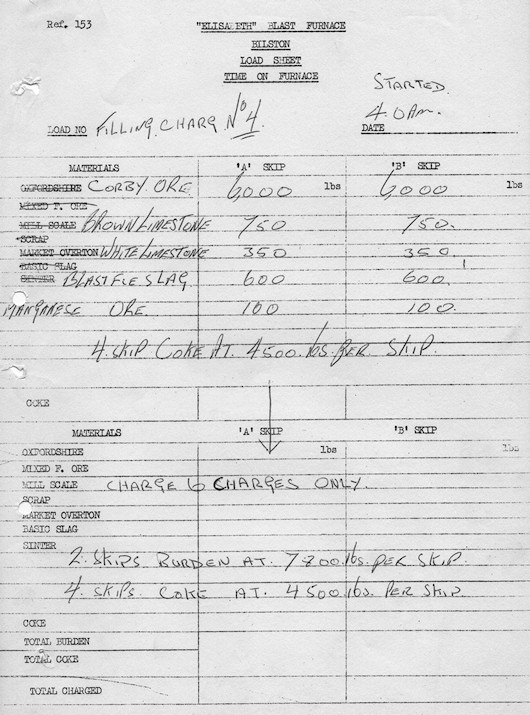 Ref. 153
"ELISABETH" BLAST FURNACE
BILSTON
LOAD SHEET
TIME ON FURNACE
STARTED
4.0AM.
LOAD NO FILLING. CHARG Nº4
DATE
MATERIALS 'A' SKIP 'B' SKIP
OXFORDSHIRE CORBY ORE 6,000 lbs 6,000 lbs
MIXED F. ORE
MILL SCALE BROWN LIMESTONE 750 750.
SCRAP
MARKET OVERTON WHITE LIMESTONE 350 350.
BASIC SLAG
SINTER BLAST FCE SLAG 600 600.
MANGANESE ORE. 100 100.
4. SKIP. COKE AT. 4500. lbs. PER SKIP.
COKE
MATERIALS 'A' SKIP 'B' SKIP
OXFORDSHIRE lbs lbs
MIXED F. ORE
MILL SCALE CHARGE 6 CHARGES ONLY.
SCRAP
MARKET OVERTON
BASIC SLAG
SINTER
2. SKIPS BURDEN AT. 7800. lbs. PER SKIP.
4. SKIPS. COKE AT. 4500. lbs. PER SKIP
COKE
TOTAL BURDEN
TOTAL COKE
TOTAL CHARGED